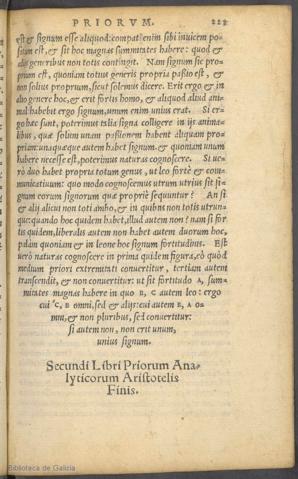 PRIORVM. 221
est & signum esse aliquod: compatienm sibi invicem po-
situm est, & sit hoc magnas summitates habere: quod &
alijs generibus non totis contingit. Nam signum sic pro-
prium est, quoniam totius generis propria passio est, &
non solius proprium, sicut solemus dicere. Erit ergo & in
alio genere hoc, & erit fortis homo, & aliquod aliud ani-
mal habebit ergo signum, unum enim unius erat. Si er-
go hæc sunt, poterimus talia signa colligere in ijs anima-
libus, quæ solum unam passionem habent aliquam pro-
priam: unaquæque autem habet signum, & quoniam unum
habere necesse est, poterimus naturas cognoscere. Si ue-
rò duo habet propria totum genus, ut leo forte & com-
municatiuum: quo modo cognoscemus utrum utrius sit si-
gnum eorum signorum quæ propriè sequuntur? An si
& alij alicui non toti ambo, & in quibus non totis utrun-
que, quando hoc quidem habet, illud autem non? nam si for-
tis quidem, liberalis autem non habet autem duorum hoc,
palàm quoniam & in leone hoc signum fortitudinis. Est
uerò naturas cognoscere in prima quidem figura, eò quòd
medium priori extremitati conuertitur, tertium autem
transcendit, & non conuertitur: ut sit fortitudo A, sum-
mitates magnas habere in quo B, C autem leo: ergo
cui C, B omni, sed & alijs: cui autem B, A o-
mni, & non pluribus, sed conuertitur:
si autem non, non erit unum,
unius signum.
Secundi Libri Priorum Ana-
lyticorum Aristotelis
Finis.
Biblioteca de Galicia